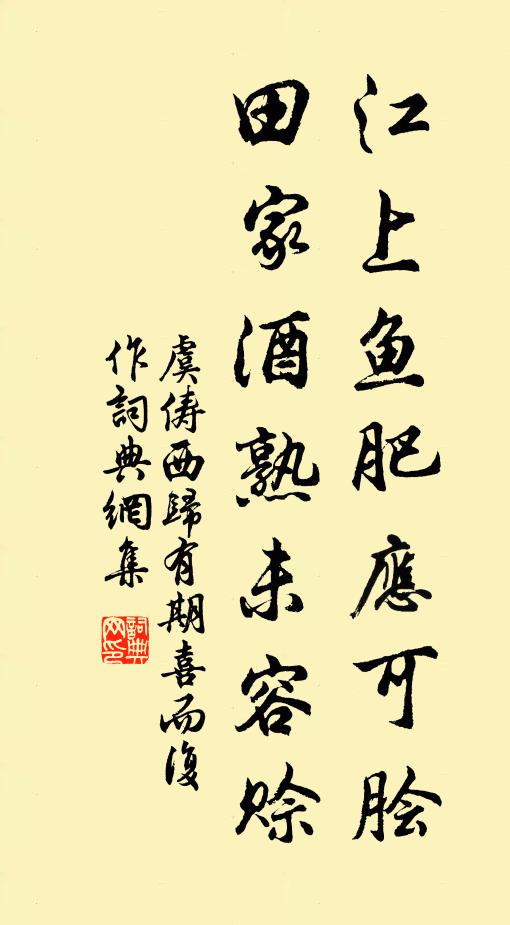 江上鱼肥應可脍
田家酒熟未容赊
虞俦西歸有期喜而復
作詞典網集
詞典网印